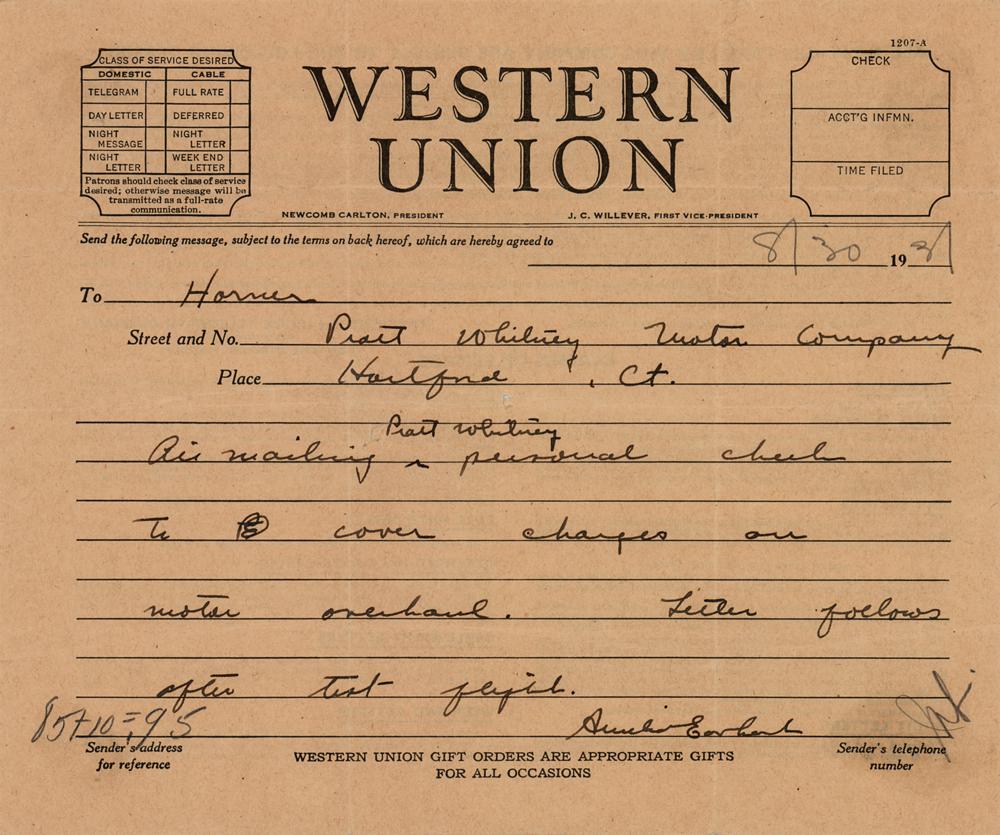 1207-A
CLASS OF SERVICE DESIRED
DOMESTIC CABLE
TELEGRAM FULL RATE
DAY LETTER DEFERRED
NIGHT MESSAGE NIGHT LETTER
NIGHT LETTER WEEK END LETTER
Patrons should check class of service
desired; otherwise message will be
transmitted as a full-rate
communication.
WESTERN
UNION
NEWCOMB CARLTON, PRESIDENT J. C. WILLEVER, FIRST VICE-PRESIDENT
CHECK
ACCT'G INFMN.
TIME FILED
Send the following message, subject to the terms on back hereof, which are hereby agreed to
8/30 19 31
To Horner
Street and No. Pratt Whitney Motor Company
Place Hartford, Ct.
Pratt Whitney
Air mailing ^ personal check
to cover charges on
motor overhaul. Letter follows
after test flight.
85+10=95 Amelia Earhart
Sender's address
for reference
WESTERN UNION GIFT ORDERS ARE APPROPRIATE GIFTS
FOR ALL OCCASIONS
Sender's telephone
number